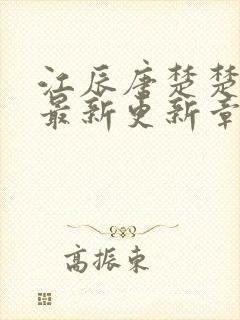 江辰唐楚楚
最新更新章
高振东